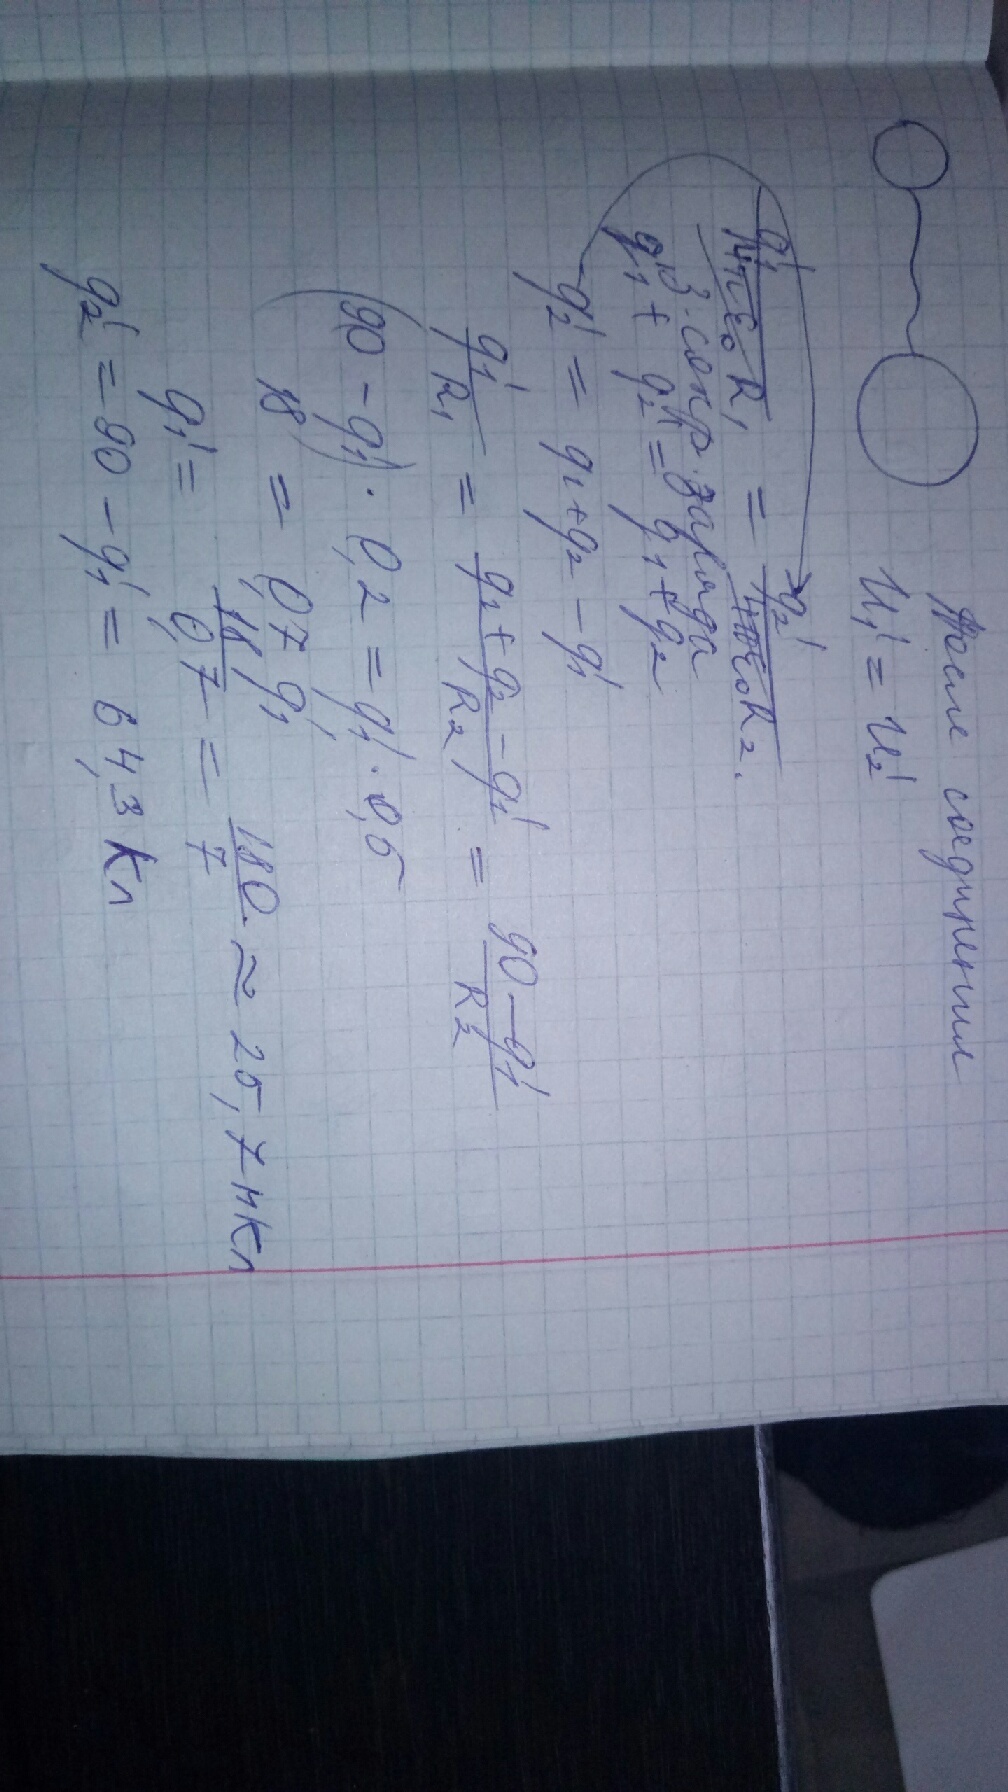 После соединения
U₁' = U₂'
q₁'/4πε₀R₁ = q₂'/4πε₀R₂.
З. сохр. заряда
q₁' + q₂' = q₁ + q₂
q₂' = q₁ + q₂ - q₁'
q₁'/R₁ = q₁ + q₂ - q₁'/R₂ = 90 - q₁'/R₂
(90 - q₁') · 0,2 = q₁' · 0,5
18 = 0,7 q₁'
q₁' = 18/0,7 = 180/7 ≈ 25,7 мкКл
q₂' = 90 - q₁' = 64,3 Кл